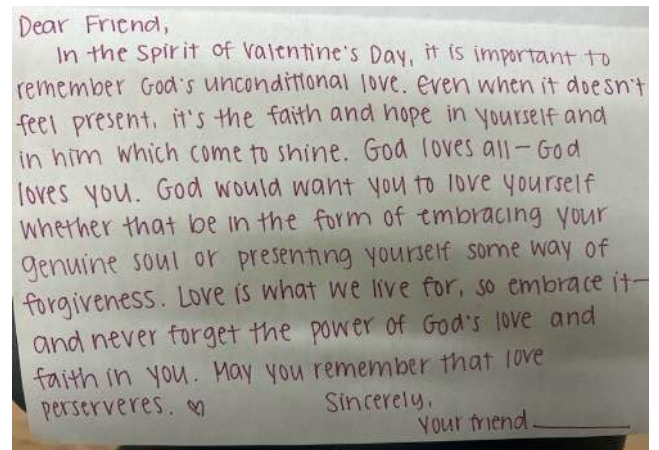 Dear Friend,
In the spirit of Valentine's Day, it is important to
remember God's unconditional love. Even when it doesn't
feel present, it's the faith and hope in yourself and
in him which come to shine. God loves all - God
loves you. God would want you to love yourself
whether that be in the form of embracing your
genuine soul or presenting yourself some way of
forgiveness. Love is what we live for, so embrace it-
and never forget the power of God's love and
faith in you. May you remember that love
perserveres. ♡
Sincerely,
your friend ________